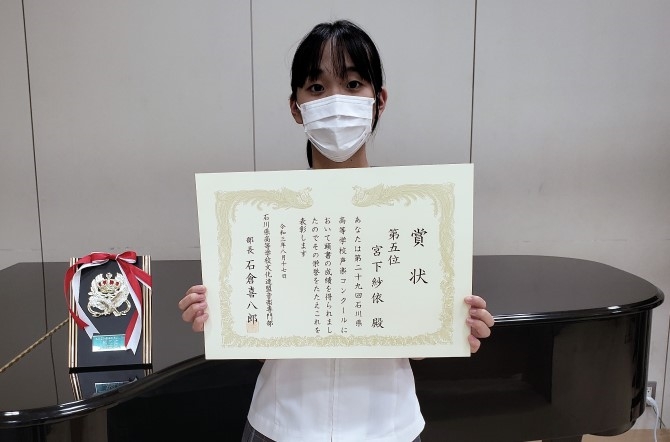 賞状
第五位
宮下紗依 殿
あなたは第二十九回石川県
高等学校声楽コンクールに
おいて頭書の成績を得られまし
たのでその栄誉をたたえこれを
表彰します
令和三年八月十七日
石川県高等学校文化連盟音楽専門部
部長 石倉喜八郎